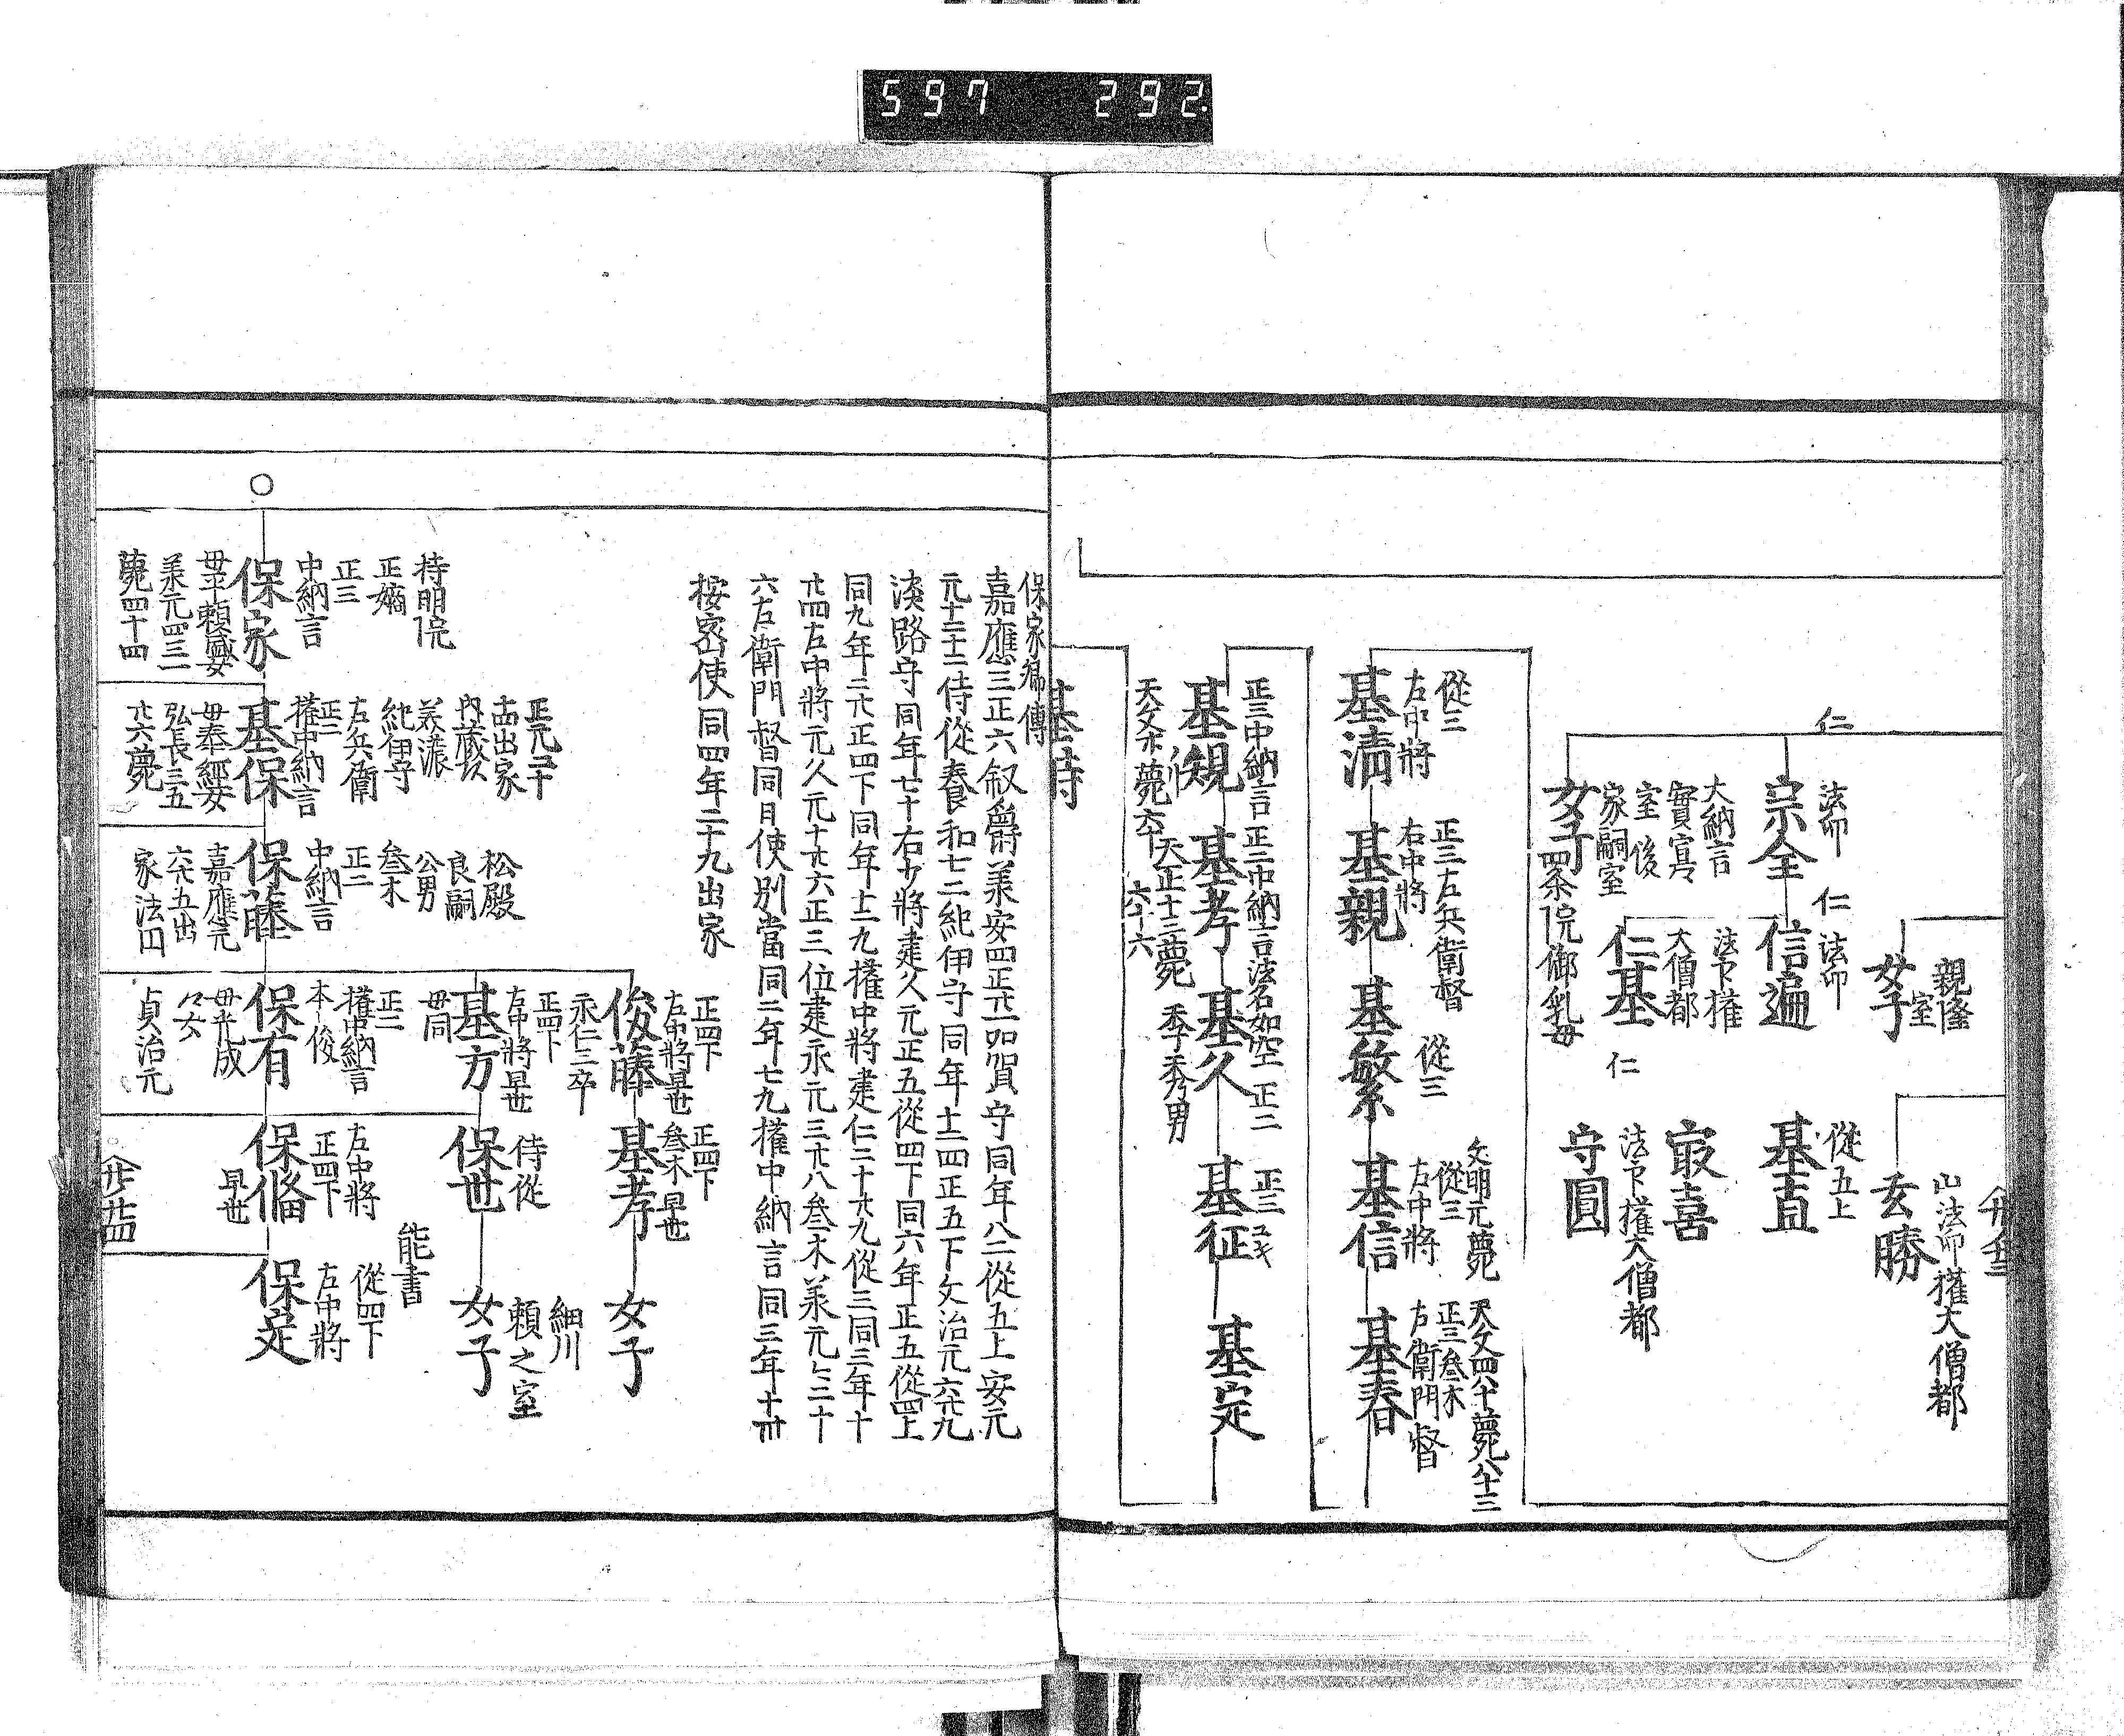 597 292
親隆
室
女子
山法印權大僧都
玄勝
仁
法印
宗全
仁
法印
信遍
從五上
基直
法下權
大僧都
仁基
最喜
仁
法下權大僧都
守圓
大納言
實宣
室後
家嗣室
女子
四条院御乳母
從三
左中將
基清
正三左兵衛督
右中將
基親
從三
基繁
文明元薨
從三
左中將
基信
天文四八十薨八十三
正三叅木
左衛門督
基春
正三中納言
基規
正二中納言法名如空
基孝
天正十三薨
六十六
正二
基久
季秀男
正三
基征
基定
基時
保家卿傳
嘉應三正六叙爵羕安四正廿一加賀守同年八二從五上安元
元十二十二侍從養和七二紀伊守同年十二四正五下文治元六廿九
淡路守同年七十右少將建久元正五從四下同六年正五從四上
同九年二廿正四下同年十二九權中將建仁二十廿九從三同三年十
廿四左中將元久元十廿六正三位建永元三廿八叄木羕元々二十
六左衛門督同日使別當同二年七九權中納言同三年十卅
按察使同四年二十九出家
正四下
左中將早世
俊藤
永仁三卒
正四下
叄木早世
基孝
女子
正四下
左中將早世
基方
母同
侍從
保世
細川
賴之室
女子
持明院
正嫡
正三
中納言
保家
母平賴盛女
羕元四三一
薨四十四
内藏頭
美濃
紀伊守
左兵衛
正二
權中納言
基保
母奉經女
弘長三五
廿六薨
松殿
良嗣
公男
叄木
正二
中納言
保藤
嘉應元
六廿五出
家法円
正二
權中納言
本俊
保有
母光成
々女
貞治元
左中將
正四下
保脩
早世
能書
從四下
左中將
保定